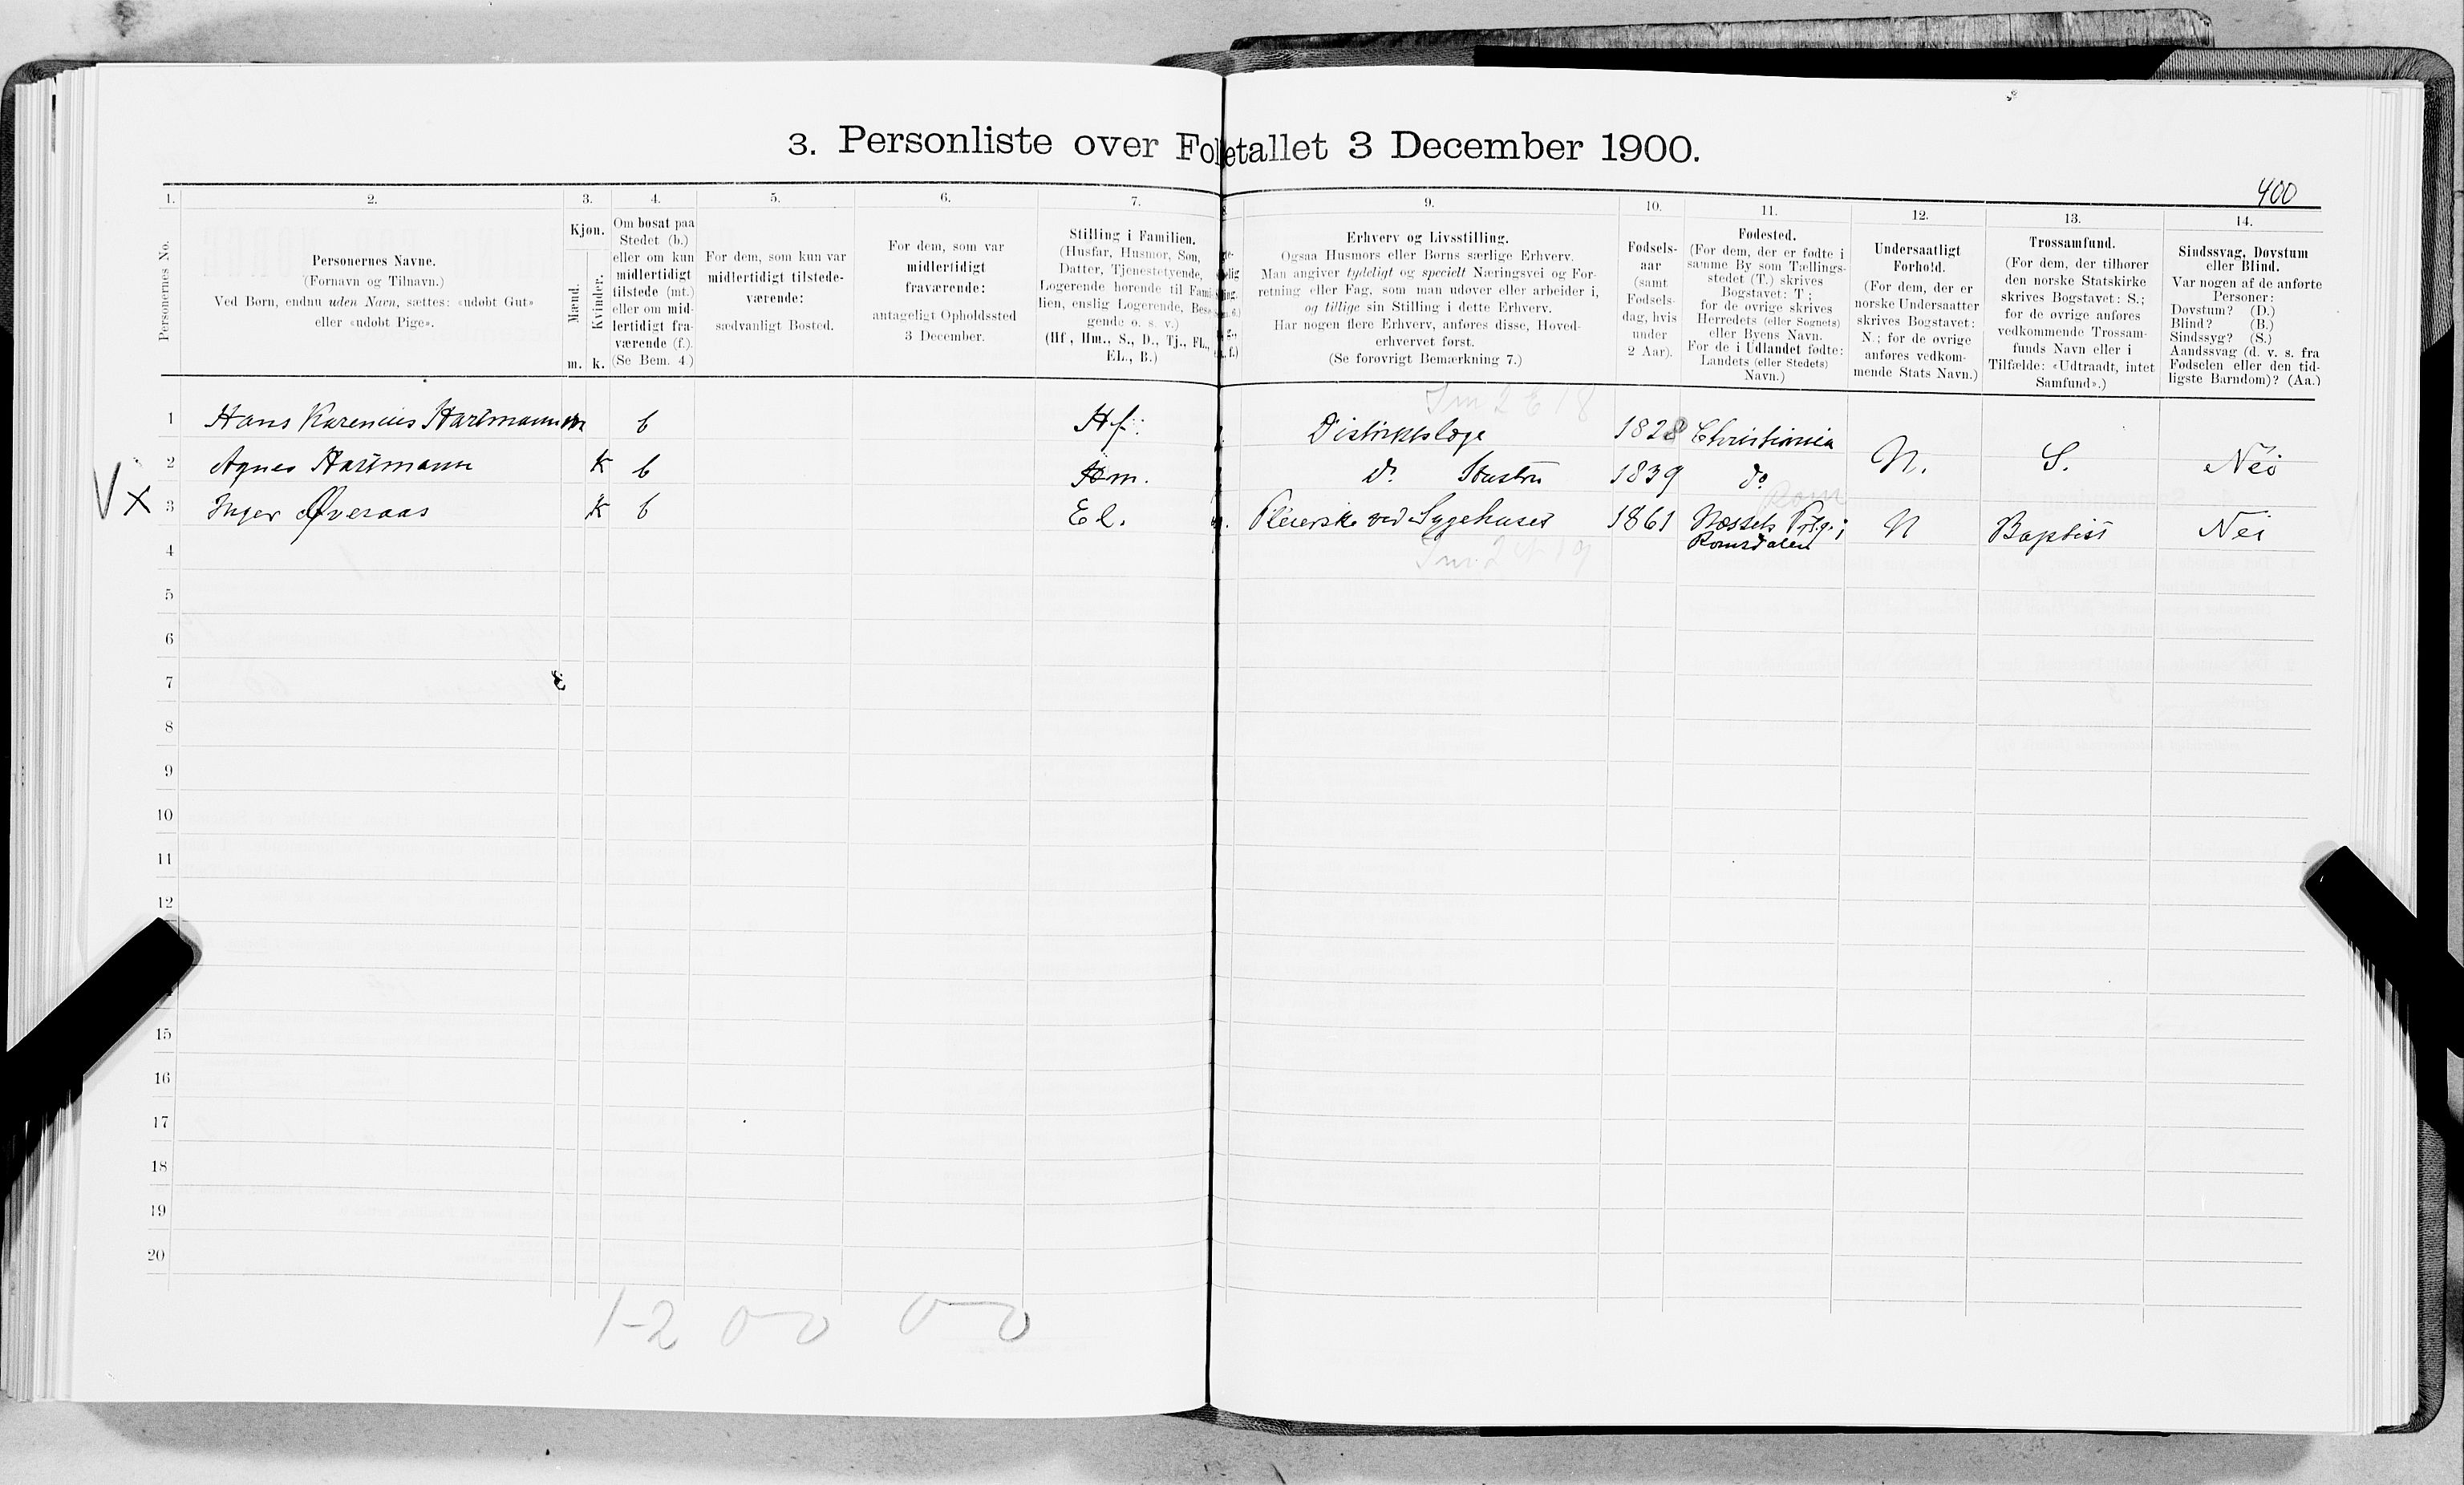 3. Personliste over Folketallet 3 December 1900.
400
1.
2.
3.
4.
5.
6.
7.
9.
10.
11.
12.
13.
14.
Personernes No.
Personernes Navne.
(Fornavn og Tilnavn.)
Ved Børn, endnu uden Navn, sættes: «udøbt Gut»
eller «udøbt Pige».
Kjøn.
Mænd.
Kvinder.
m. k.
Om bosat paa
Stedet (b.)
eller om kun
midlertidigt
tilstede (mt.)
eller om mid-
lertidigt fra-
værende (f.).
(Se Bem. 4.)
For dem, som kun var
midlertidigt tilstede-
værende:
sædvanligt Bosted.
For dem, som var
midlertidigt
fraværende:
antageligt Opholdssted
3 December.
Stilling i Familien.
(Husfar, Husmor, Søn,
Datter, Tjenestetyende,
Logerende hørende til Fami-
lien, enslig Logerende, Besø-
gende o. s. v.)
(Hf., Hm., S., D., Tj., FL.,
EL., B.)
Erhverv og Livsstilling.
Ogsaa Husmors eller Børns særlige Erhverv.
Man angiver tydeligt og specielt Næringsvei og For-
retning eller Fag, som man udøver eller arbeider i,
og tillige sin Stilling i dette Erhverv.
Har nogen flere Erhverv, anføres disse, Hoved-
erhvervet først.
(Se forøvrigt Bemærkning 7.)
Fødsels-
aar
(samt
Fødsels-
dag, hvis
under
2 Aar).
Fødested.
(For dem, der er fødte i
samme By som Tællings-
stedet (T.) skrives
Bogstavet: T;
for de øvrige skrives
Herredets (eller Sognets)
eller Byens Navn.
For de i Udlandet fødte:
Landets (eller Stedets)
Navn.)
Undersaatligt
Forhold.
(For dem, der er
norske Undersaatter
skrives Bogstavet:
N.; for de øvrige
anføres vedkom-
mende Stats Navn.)
Trossamfund.
(For dem, der tilhører
den norske Statskirke
skrives Bogstavet: S.;
for de øvrige anføres
vedkommende Trossam-
funds Navn eller i
Tilfælde: «Udtraadt, intet
Samfund».)
Sindssvag, Døvstum
eller Blind.
Var nogen af de anførte
Personer:
Døvstum? (D.)
Blind? (B.)
Sindssyg? (S.)
Aandssvag (d. v. s. fra
Fødselen eller den tid-
ligste Barndom)? (Aa.)
1 Hans Karenius Hartmann m b Hf. Distriktslæge 1828 Christiania
2 Agnes Hartmann k b Hm. do Hustru 1839 do N. S. Nei
V X 3 Inger Øveraas k b El. Pleierske ved Sygehuset 1861 Næssets Prstg. i N Baptist Nei
Romsdalen
4
5
6
7
8
9
10
11
12
15
16
17
18
19
20
1-2 0-0 0-0